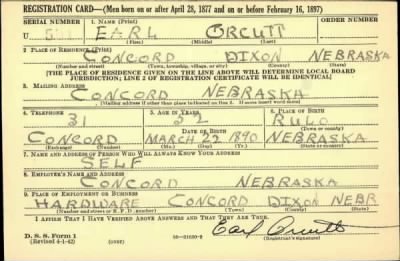 REGISTRATION CARD—(Men born on or after April 28, 1877 and on or before February 16, 1897)
SERIAL NUMBER 1. NAME (Print) ORDER NUMBER
U EARL ORCUTT
(First) (Middle) (Last)
2. PLACE OF RESIDENCE (Print)
CONCORD DIXON NEBRASKA
(Number and street) (Town, township, village, or city) (County) (State)
[THE PLACE OF RESIDENCE GIVEN ON THE LINE ABOVE WILL DETERMINE LOCAL BOARD
JURISDICTION; LINE 2 OF REGISTRATION CERTIFICATE WILL BE IDENTICAL]
3. MAILING ADDRESS
CONCORD NEBRASKA
[Mailing address if other than place indicated on line 2. If same insert word same]
4. TELEPHONE 5. AGE IN YEARS 6. PLACE OF BIRTH
31 52 RULO
DATE OF BIRTH (Town or county)
CONCORD MARCH 22 1890 NEBRASKA
(Exchange) (Number) (Mo.) (Day) (Yr.) (State or country)
7. NAME AND ADDRESS OF PERSON WHO WILL ALWAYS KNOW YOUR ADDRESS
SELF
8. EMPLOYER'S NAME AND ADDRESS
CONCORD NEBRASKA
9. PLACE OF EMPLOYMENT OR BUSINESS
HARDWARE CONCORD DIXON NEBR
(Number and street or R. F. D. number) (Town) (County) (State)
I AFFIRM THAT I HAVE VERIFIED ABOVE ANSWERS AND THAT THEY ARE TRUE.
D. S. S. Form 1
(Revised 4-1-42) (over) 16—21630-2 Earl Orcutt
(Registrant's signature)